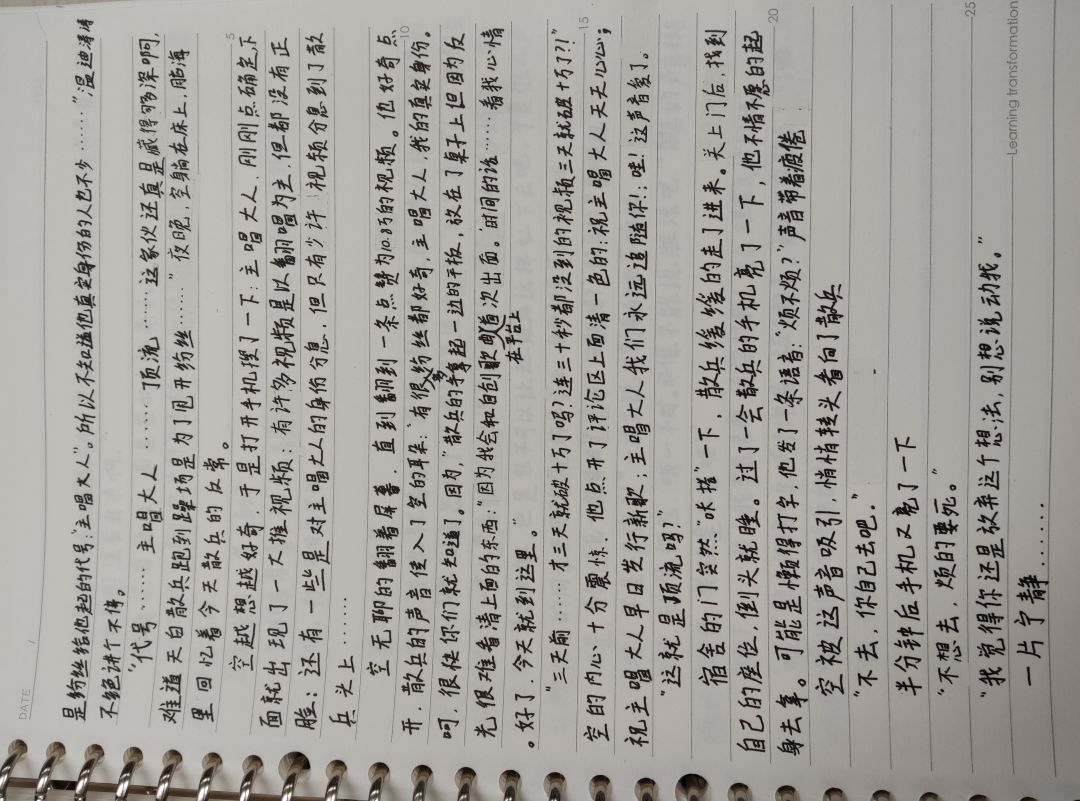 DATE
是粉丝给他起的代号:"主唱大人"。所以不知道他真实身份的人也不少……"温迪滔滔
不绝讲个不停。
"代号……主唱大人……顶流……这家伙还真是藏得够深啊,
难道天白散兵跑到躁场是为了甩开粉丝……"夜晚,空躺在床上,脑海
里回忆着今天散兵的反常。
5
空越想越好奇,于是打开手机搜了一下:主唱大人,刚刚点确定,下
面就出现了一大推视频;有许多视频是以翻唱为主,但都没有正
脸;还有一些是对主唱大人的身份分息,但只有少许视频分息到了散
兵头上……
空无聊的翻着屏幕,直到翻到一条点赞为10.8万的视频。他好奇点
10
开,散兵的声音传入了空的耳朵:"有很多粉丝都好奇,主唱大人,我的真实身份。
呵,很快你们就知道了。因为,"散兵的手拿起一边的平板,放在了桌子上但因为反
光很难看清上面的东西:"因为我会和自创歌曲首次在平台上出面。时间的话……看我心情
。好了,今天就到这里。"
"三天前……才三天就破十万了吗?连三十秒都没到的视频三天就破十万??!"
15
空的内心十分震惊,他点开了评论区上面清一色的:祝主唱大人天天心心;
祝主唱大人早日发行新歌;主唱大人我们永远追随你!;哇!这声音爱了。
"这就是顶流吗?"
宿舍的门突然"咔擦"一下,散兵缓缓的走了进来。关上门后,找到
自己的座位,倒头就睡。过了一会散兵的手机亮了一下,他不情不愿的起
20
身去拿。可能是懒得打字,他发了一条语音:"烦不烦?"声音带着疲倦
空被这声音吸引,悄悄转头看向了散兵
"不去,你自己去吧。"
半分钟后手机又亮了一下
"不想去,烦的要死。"
"我觉得你还是放弃这个想法,别想说动我。"
25
一片宁静……
Learning transformation